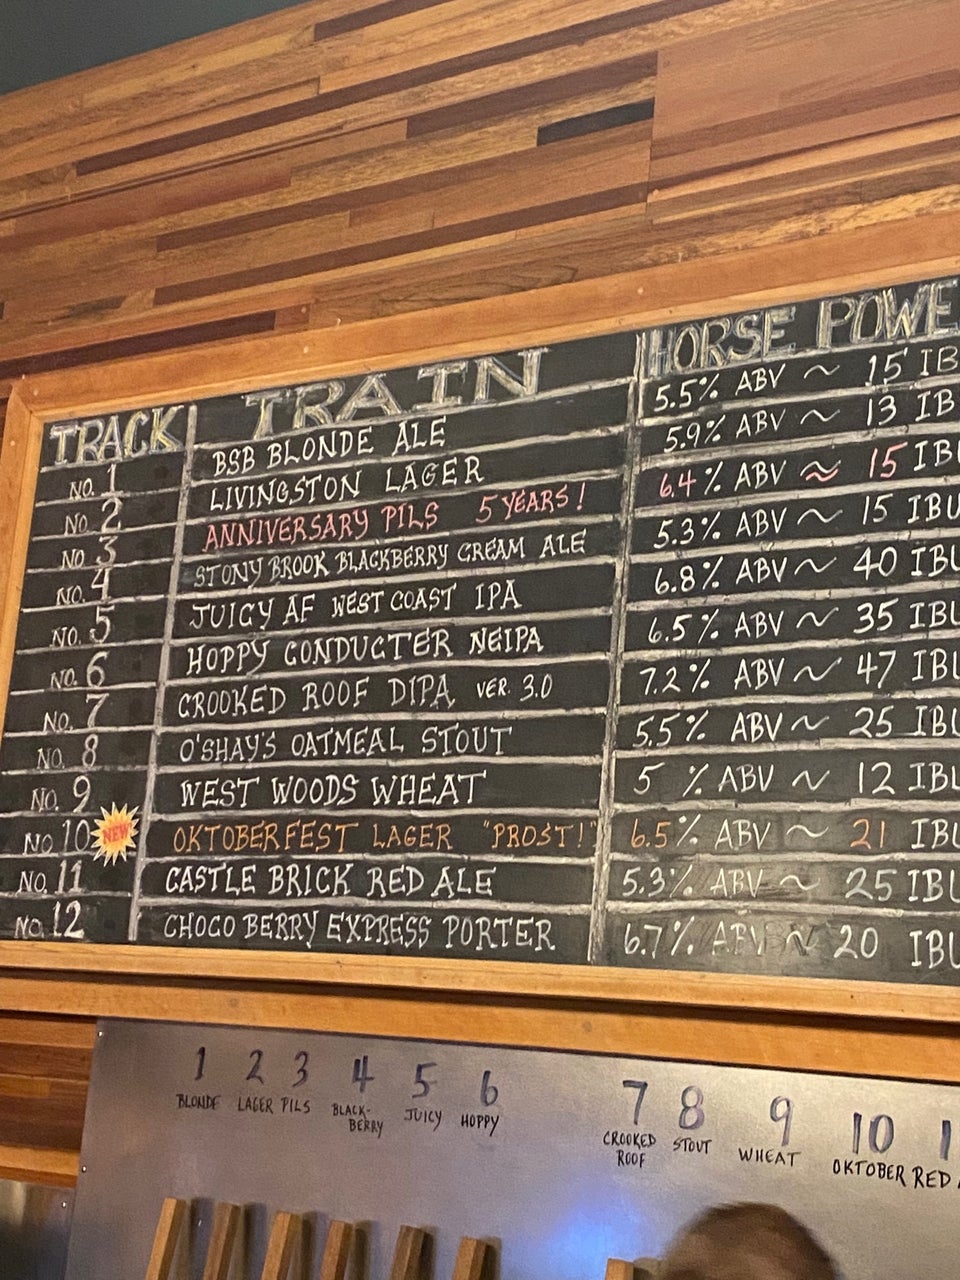 TRACK TRAIN HORSE POWE
NO. 1 BSB BLONDE ALE 5.5% ABV ~ 15 IB
NO. 2 LIVINGSTON LAGER 5.9% ABV ~ 13 IB
NO. 3 ANNIVERSARY PILS 5 YEARS! 6.4% ABV ≈ 15 IBU
NO. 4 STONY BROOK BLACKBERRY CREAM ALE 5.3% ABV ~ 15 IBU
NO. 5 JUICY AF WEST COAST IPA 6.8% ABV ~ 40 IBU
NO. 6 HOPPY CONDUCTER NEIPA 6.5% ABV ~ 35 IBU
NO. 7 CROOKED ROOF DIPA VER. 3.0 7.2% ABV ~ 47 IBU
NO. 8 O'SHAY'S OATMEAL STOUT 5.5% ABV ~ 25 IBU
NO. 9 WEST WOODS WHEAT 5 % ABV ~ 12 IBU
NO. 10 NEW OKTOBERFEST LAGER "PROST!" 6.5% ABV ~ 21 IBU
NO. 11 CASTLE BRICK RED ALE 5.3% ABV ~ 25 IBU
NO. 12 CHOCO BERRY EXPRESS PORTER 6.7% ABV ~ 20 IBU
1 2 3 4 5 6 7 8 9 10 1
BLONDE LAGER PILS BLACK- JUICY HOPPY CROOKED STOUT WHEAT OKTOBER RED
BERRY ROOF